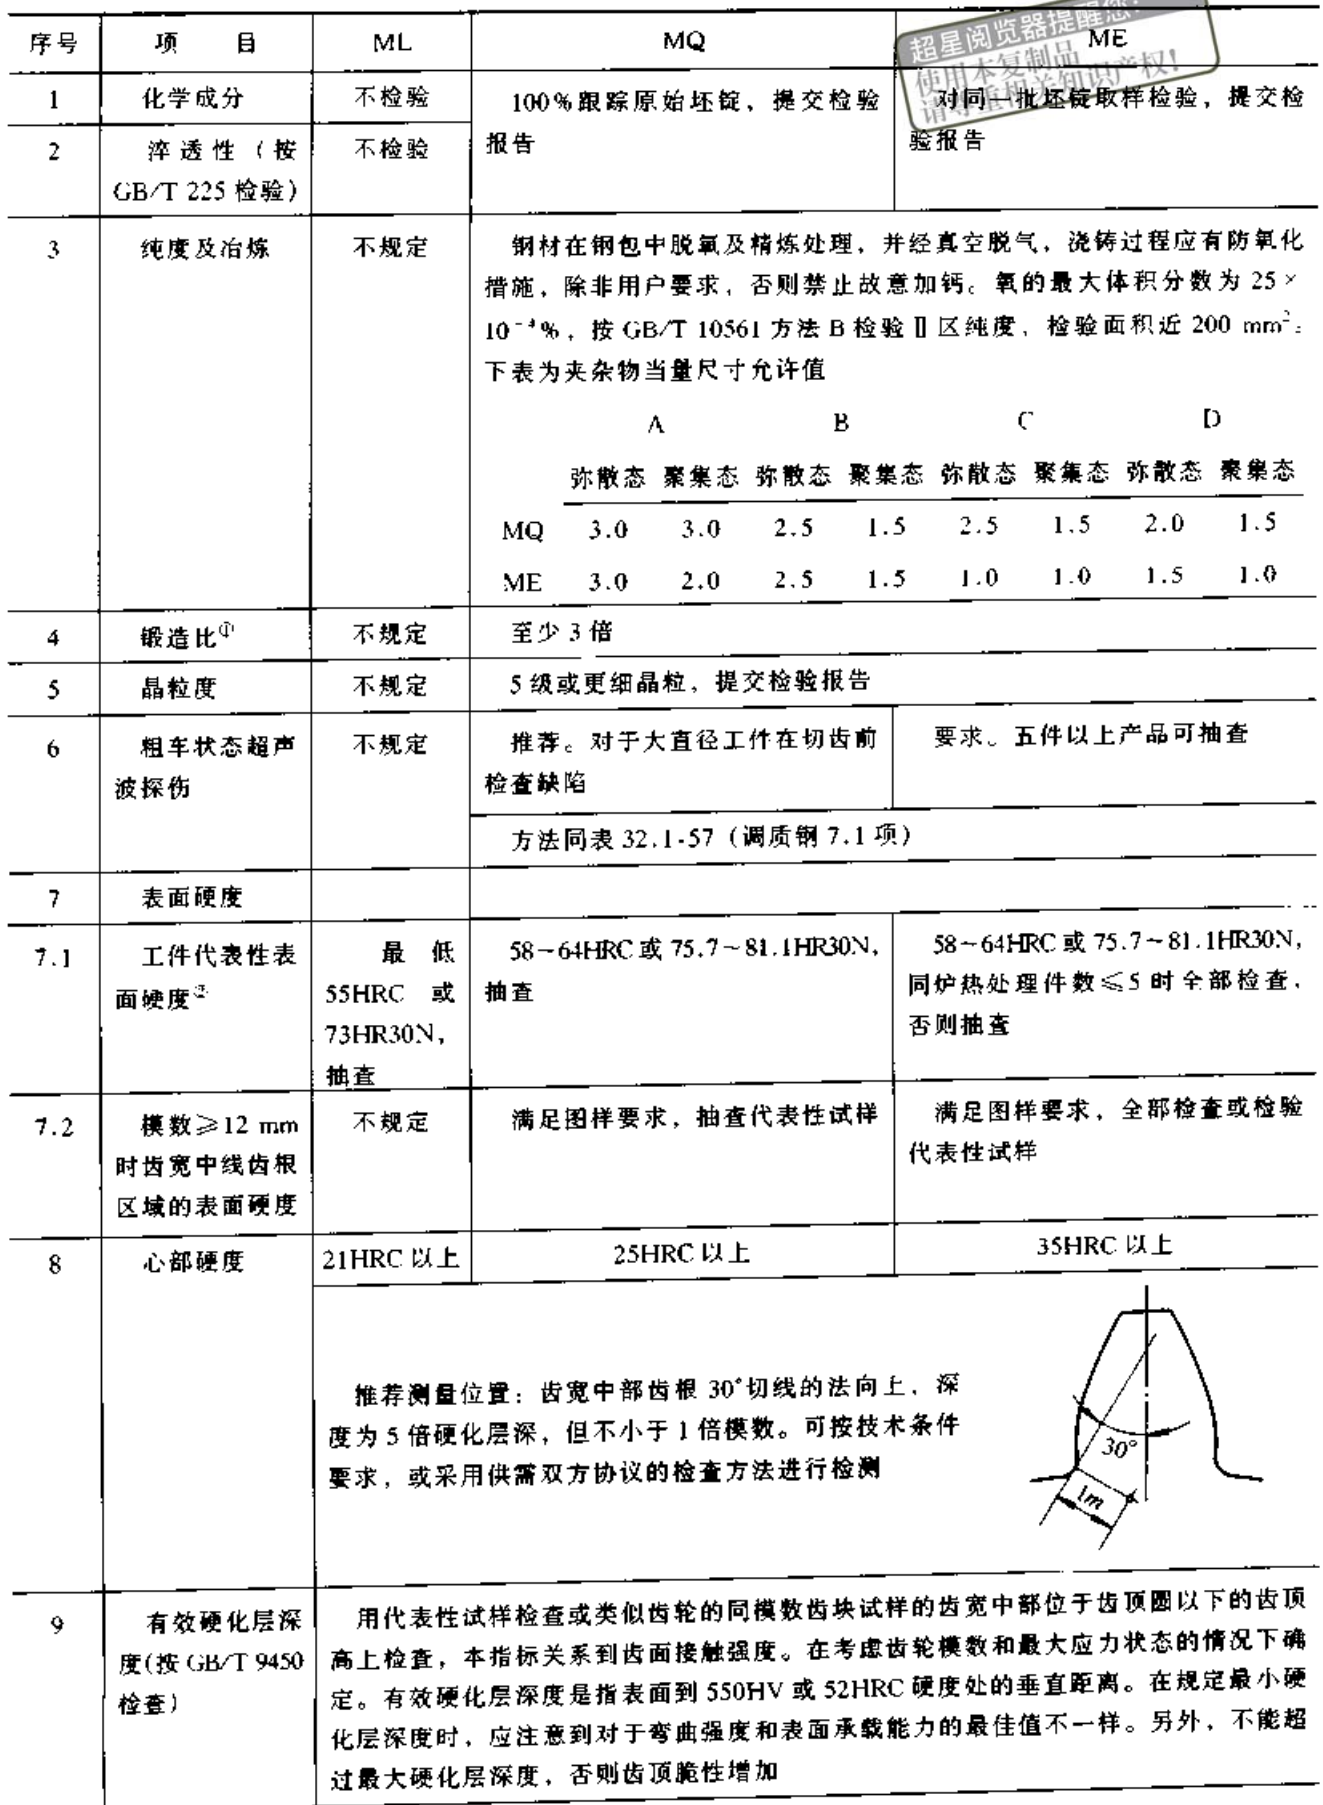 序号 项 目 ML MQ ME
超星阅览器提醒您：
使用本复制品
请尊重相关知识产权！
1 化学成分 不检验 100%跟踪原始坯锭，提交检验 对同一批坯锭取样检验，提交检
报告 验报告
2 淬透性（按 不检验
GB/T 225 检验）
3 纯度及冶炼 不规定 钢材在钢包中脱氧及精炼处理，并经真空脱气，浇铸过程应有防氧化
措施，除非用户要求，否则禁止故意加钙。氧的最大体积分数为 25×
10⁻⁴%，按 GB/T 10561 方法 B 检验 Ⅱ 区纯度，检验面积近 200 mm²。
下表为夹杂物当量尺寸允许值
A B C D
弥散态 聚集态 弥散态 聚集态 弥散态 聚集态 弥散态 聚集态
MQ 3.0 3.0 2.5 1.5 2.5 1.5 2.0 1.5
ME 3.0 2.0 2.5 1.5 1.0 1.0 1.5 1.0
4 锻造比① 不规定 至少 3 倍
5 晶粒度 不规定 5 级或更细晶粒，提交检验报告
6 粗车状态超声 不规定 推荐。对于大直径工件在切齿前 要求。五件以上产品可抽查
波探伤 检查缺陷
方法同表 32.1-57（调质钢 7.1 项）
7 表面硬度
7.1 工件代表性表 最 低 58~64HRC 或 75.7~81.1HR30N， 58~64HRC 或 75.7~81.1HR30N，
面硬度② 55HRC 或 抽查 同炉热处理件数≤5 时全部检查，
73HR30N， 否则抽查
抽查
7.2 模数≥12 mm 不规定 满足图样要求，抽查代表性试样 满足图样要求，全部检查或检验
时齿宽中线齿根 代表性试样
区域的表面硬度
8 心部硬度 21HRC 以上 25HRC 以上 35HRC 以上
推荐测量位置：齿宽中部齿根 30°切线的法向上，深
度为 5 倍硬化层深，但不小于 1 倍模数。可按技术条件
要求，或采用供需双方协议的检查方法进行检测
30°
1m
9 有效硬化层深 用代表性试样检查或类似齿轮的同模数齿块试样的齿宽中部位于齿顶圆以下的齿顶
度(按 GB/T 9450 高上检查，本指标关系到齿面接触强度。在考虑齿轮模数和最大应力状态的情况下确
检查） 定。有效硬化层深度是指表面到 550HV 或 52HRC 硬度处的垂直距离。在规定最小硬
化层深度时，应注意到对于弯曲强度和表面承载能力的最佳值不一样。另外，不能超
过最大硬化层深度，否则齿顶脆性增加